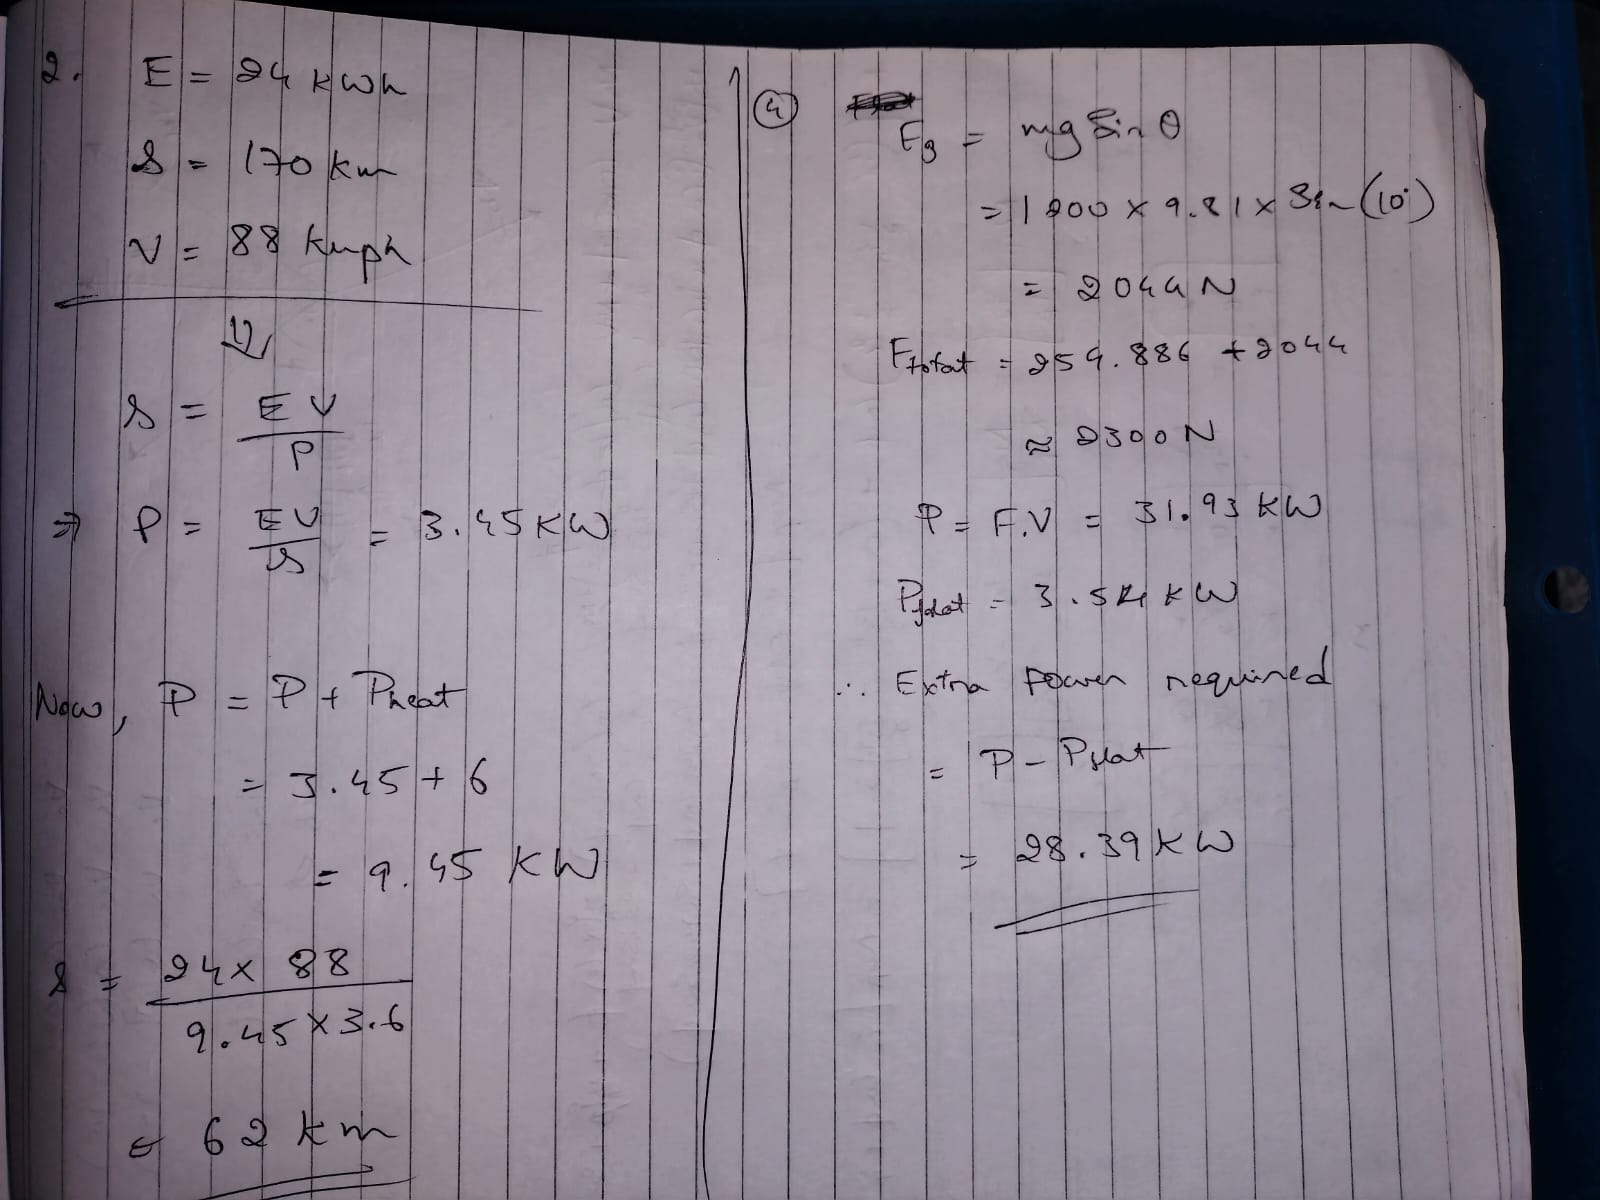 2. E = 24 KWh
S = 170 Km
V = 88 Kmph
⇓
S = EV / P
⇒ P = EV / S = 3.45 KW
Now, P = P + Pheat
= 3.45 + 6
= 9.45 KW
S = 24 x 88 / 9.45 x 3.6
= 62 km
④
Fg = mg Sin θ
= 1200 x 9.81 x Sin (10°)
= 2044 N
Ftotal = 259.886 + 2044
≈ 2300 N
P = F.V = 31.93 KW
Pflat = 3.54 KW
∴ Extra Power required
= P - Pflat
= 28.39 KW